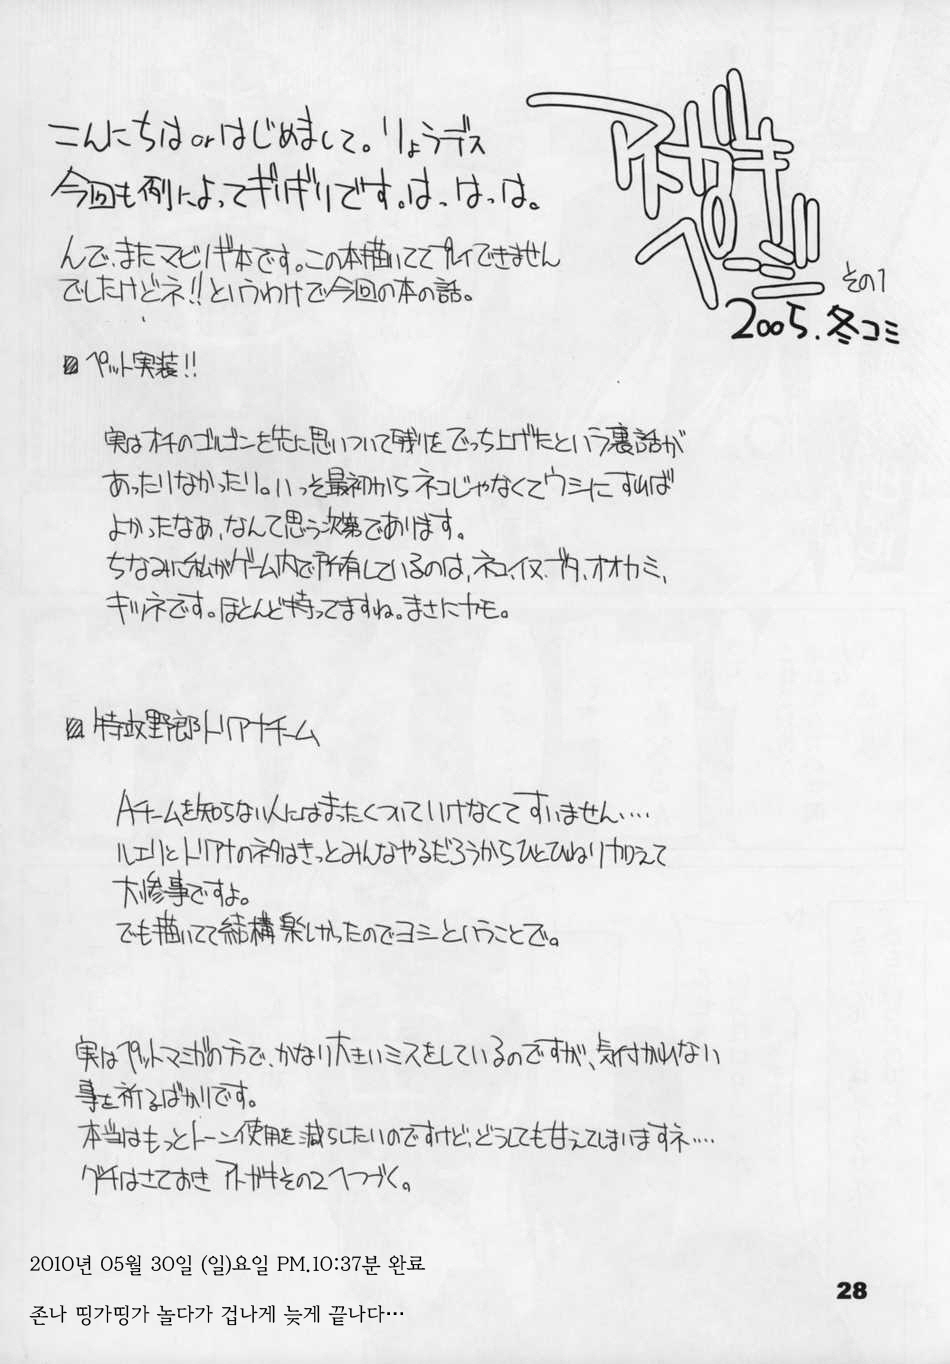 アトガキ
ぺーじ
その1
2005.冬コミ
こんにちはorはじめまして。りょうデス
今回も例によってギリギリです。は、は、は。
んで、またマビノギ本です。この本描いててプレイできません
でしたけどネ!!というわけで今回の本の話。
ペット実装!!
実はオチのゴルゴンを先に思いついて残りをでっち上げたという裏話が
あったりなかったり。いっそ最初からネコじゃなくてウシにすれば
よかったなあ、なんて思う次第であります。
ちなみに私がゲーム内で所有しているのは、ネコ、イヌ、ブタ、オオカミ、
キツネです。ほとんど持ってますね。まさにカモ。
特攻野郎トリアナチーム
Aチームを知らない人にはまったくついていけなくてすいません‥‥
ルエリとトリアナのネタはきっとみんなやるだろうからひとひねり加えて
大惨事ですよ。
でも描いてて結構楽しかったのでヨシということで。
実はペットマンガの方で、かなり大きいミスをしているのですが、気付かれない
事を祈るばかりです。
本当はもっとトーン使用を減らしたいのですけど、どうしても甘えてしまいますネ‥‥
グチはさておきアトガキその2へつづく。
2010년 05월 30일 (일)요일 PM.10:37분 완료
존나 띵가띵가 놀다가 겁나게 늦게 끝나다…
28